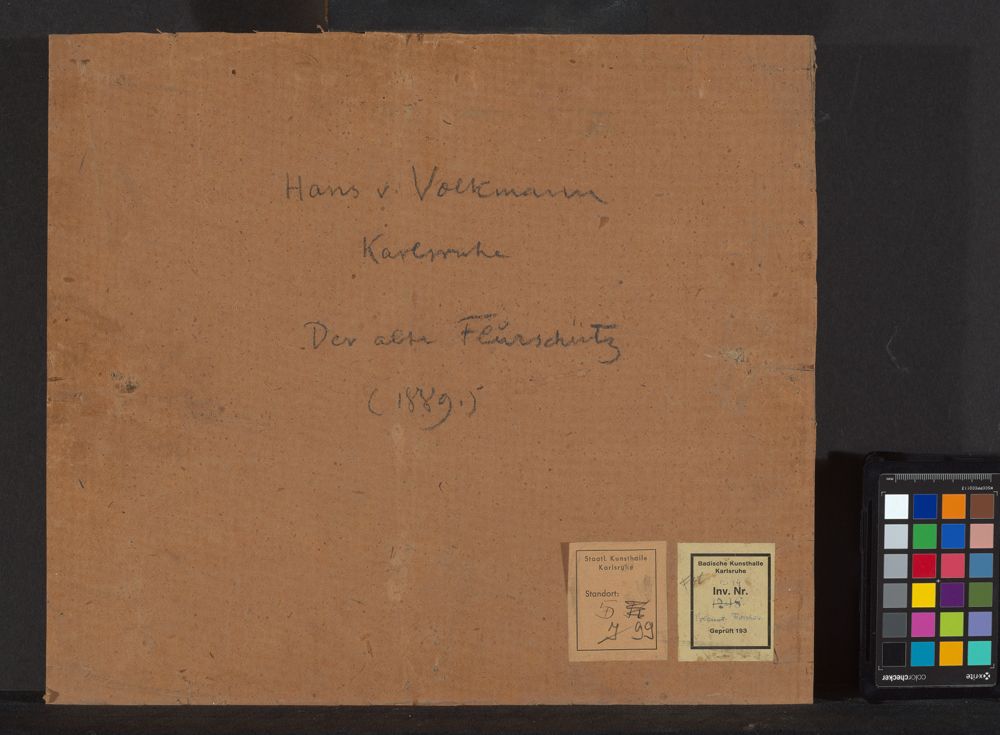 Hans v. Volkmann
Karlsruhe
Der alte Flurschütz
(1889.)
Staatl. Kunsthalle
Karlsruhe
Standort:
D
J 99
Badische Kunsthalle
Karlsruhe
Inv. Nr.
Geprüft 193
colorchecker
x-rite